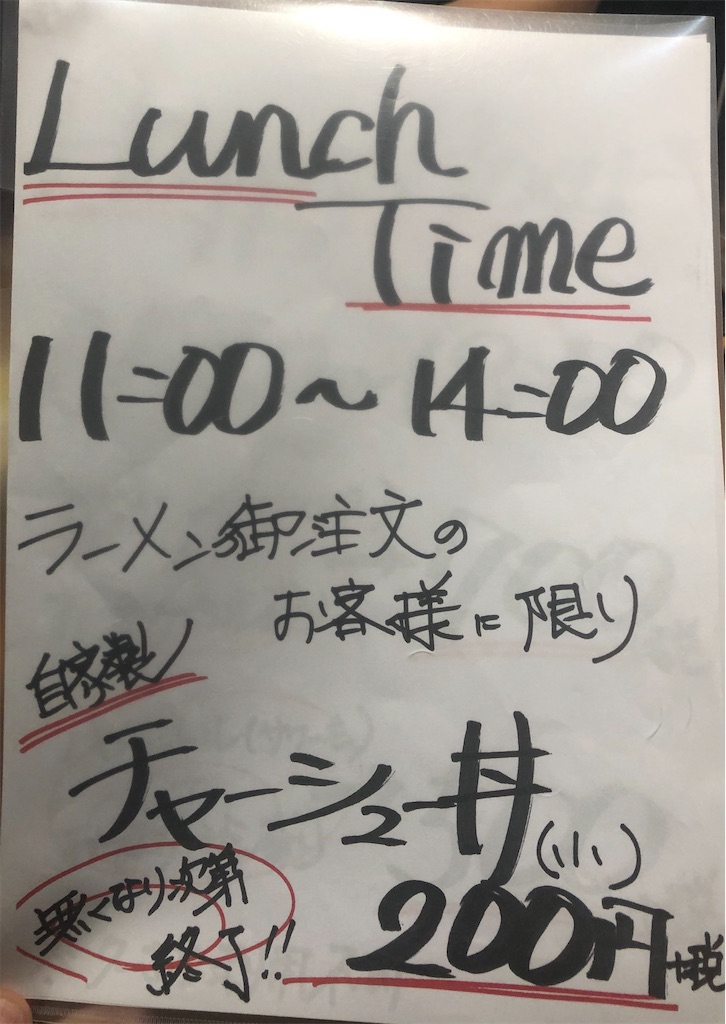 Lunch
Time
11:00～14:00
ラーメン御注文の
お客様に限り
自家製
チャーシュー丼(小)
200円+税
無くなり次第
終了!!